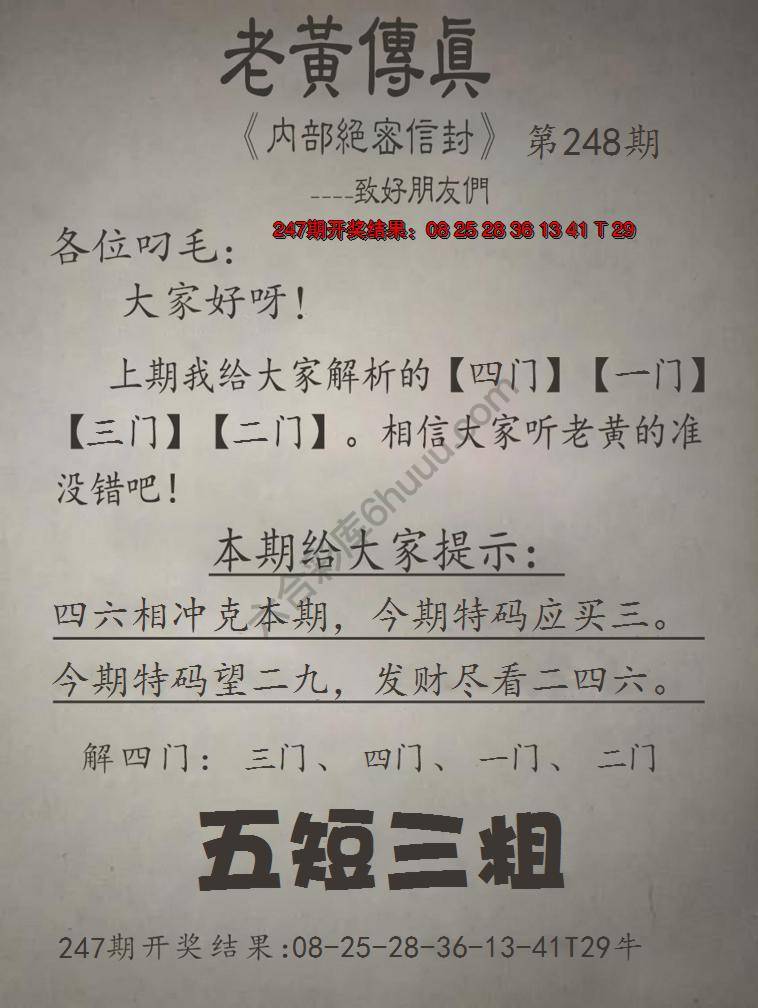 老黃傳真
《内部絕密信封》 第248期
----致好朋友們
247期开奖结果：08 25 28 36 13 41 T 29
各位叼毛：
大家好呀！
上期我给大家解析的【四门】【一门】
【三门】【二门】。相信大家听老黄的准
没错吧！
本期给大家提示：
四六相冲克本期，今期特码应买三。
今期特码望二九，发财尽看二四六。
解四门：三门、四门、一门、二门
五短三粗
247期开奖结果:08-25-28-36-13-41T29牛
六合彩库6huuu.com